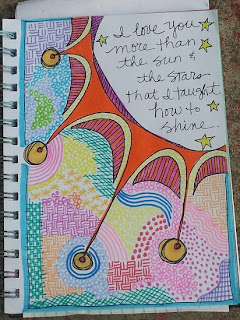 I love you
more than
the sun &
the stars
that I taught
how to
shine.